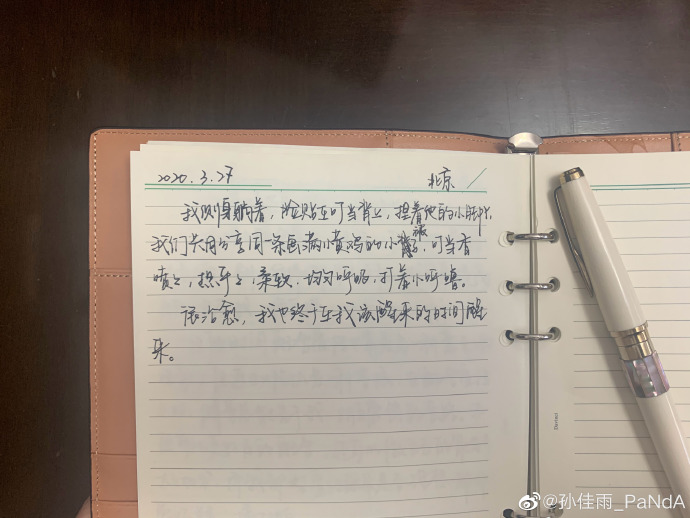 2020.3.27 北京
我侧身躺着，脸贴在叮当背上，捏着他的小胖
我们共同分享同一条画满小黄鸡的小被子，叮当香
喷喷，热乎乎，柔软，均匀呼吸，打着小呼噜。
很治愈，我也终于在我该醒来的时间醒
来。
Davinci
@孙佳雨_PaNdA